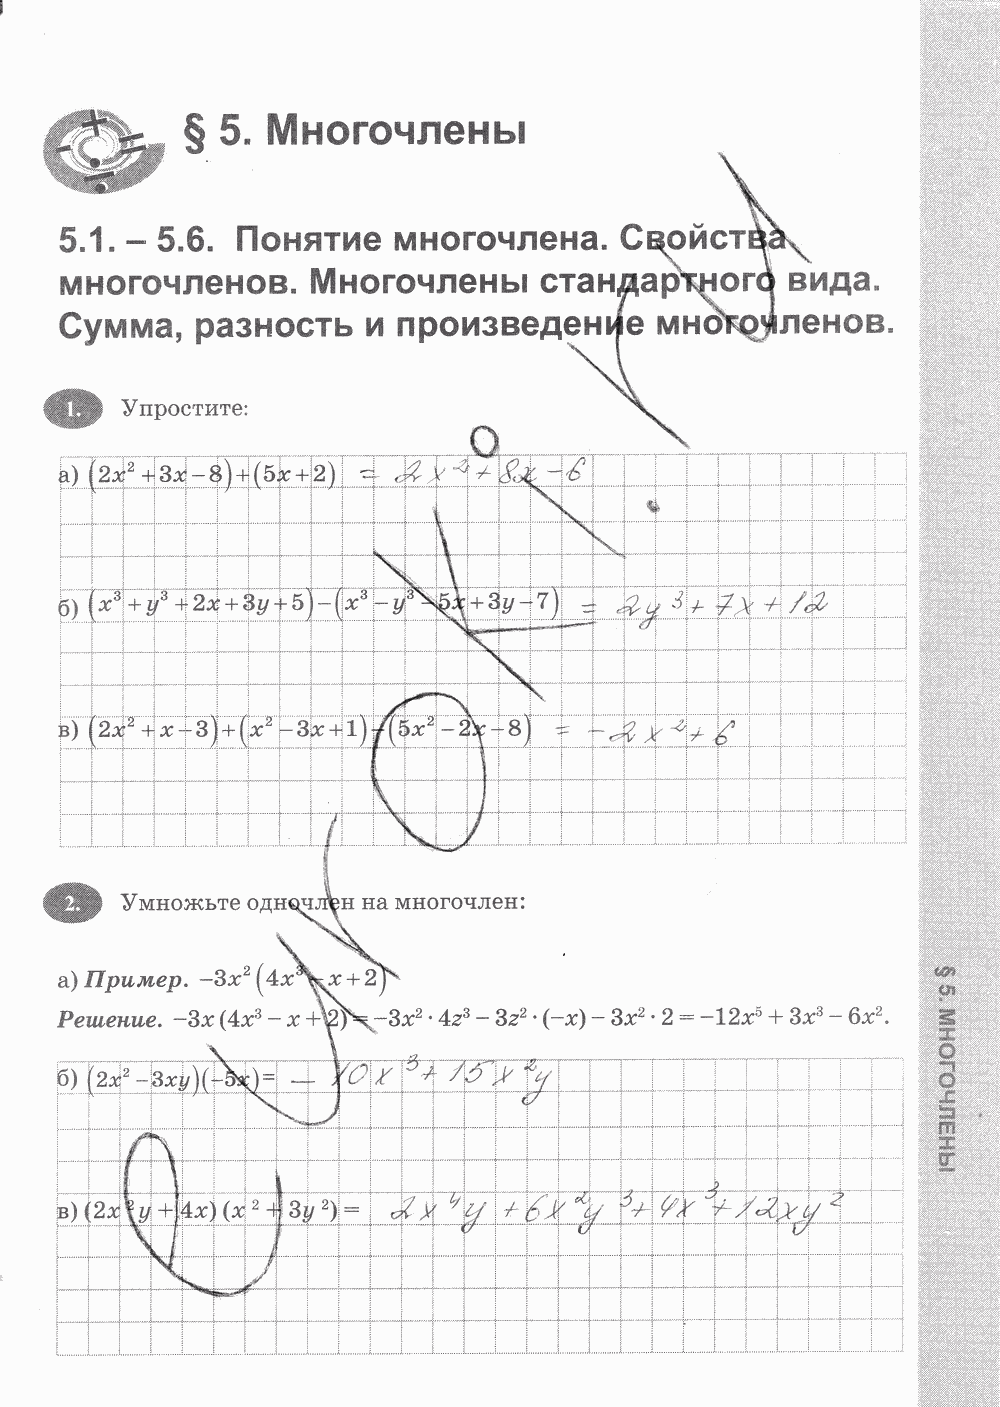 § 5. Многочлены
5.1. – 5.6. Понятие многочлена. Свойства
многочленов. Многочлены стандартного вида.
Сумма, разность и произведение многочленов.
1. Упростите:
а) (2x² +3x−8)+(5x+2) = 2x²+8x−6
б) (x³ + y³ +2x+3y+5)−(x³ − y³ −5x+3y−7) = 2y³+7x+12
в) (2x² + x−3)+(x² −3x+1)−(5x² −2x−8) = −2x²+6
2. Умножьте одночлен на многочлен:
а) Пример. −3x² (4x³ − x+2)
Решение. −3x (4x³ − x + 2) = −3x² · 4z³ − 3z² · (−x) − 3x² · 2 = −12x⁵ + 3x³ − 6x².
б) (2x² −3xy)(−5x)= − 10x³+15x²y
в) (2x ²y + 4x) (x ² + 3y ²) = 2x⁴y +6x²y³+4x³+12xy²
§ 5. МНОГОЧЛЕНЫ